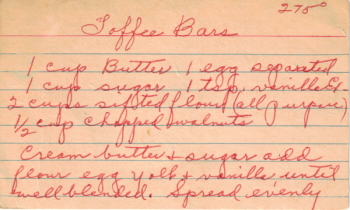 275°
Toffee Bars
1 cup Butter 1 egg separated
1 cup sugar 1 tsp. vanilla Ex.
2 cups sifted flour (all purpose)
1/2 cup chopped walnuts
Cream butter & sugar add
flour egg yolk & vanilla until
well blended. Spread evenly